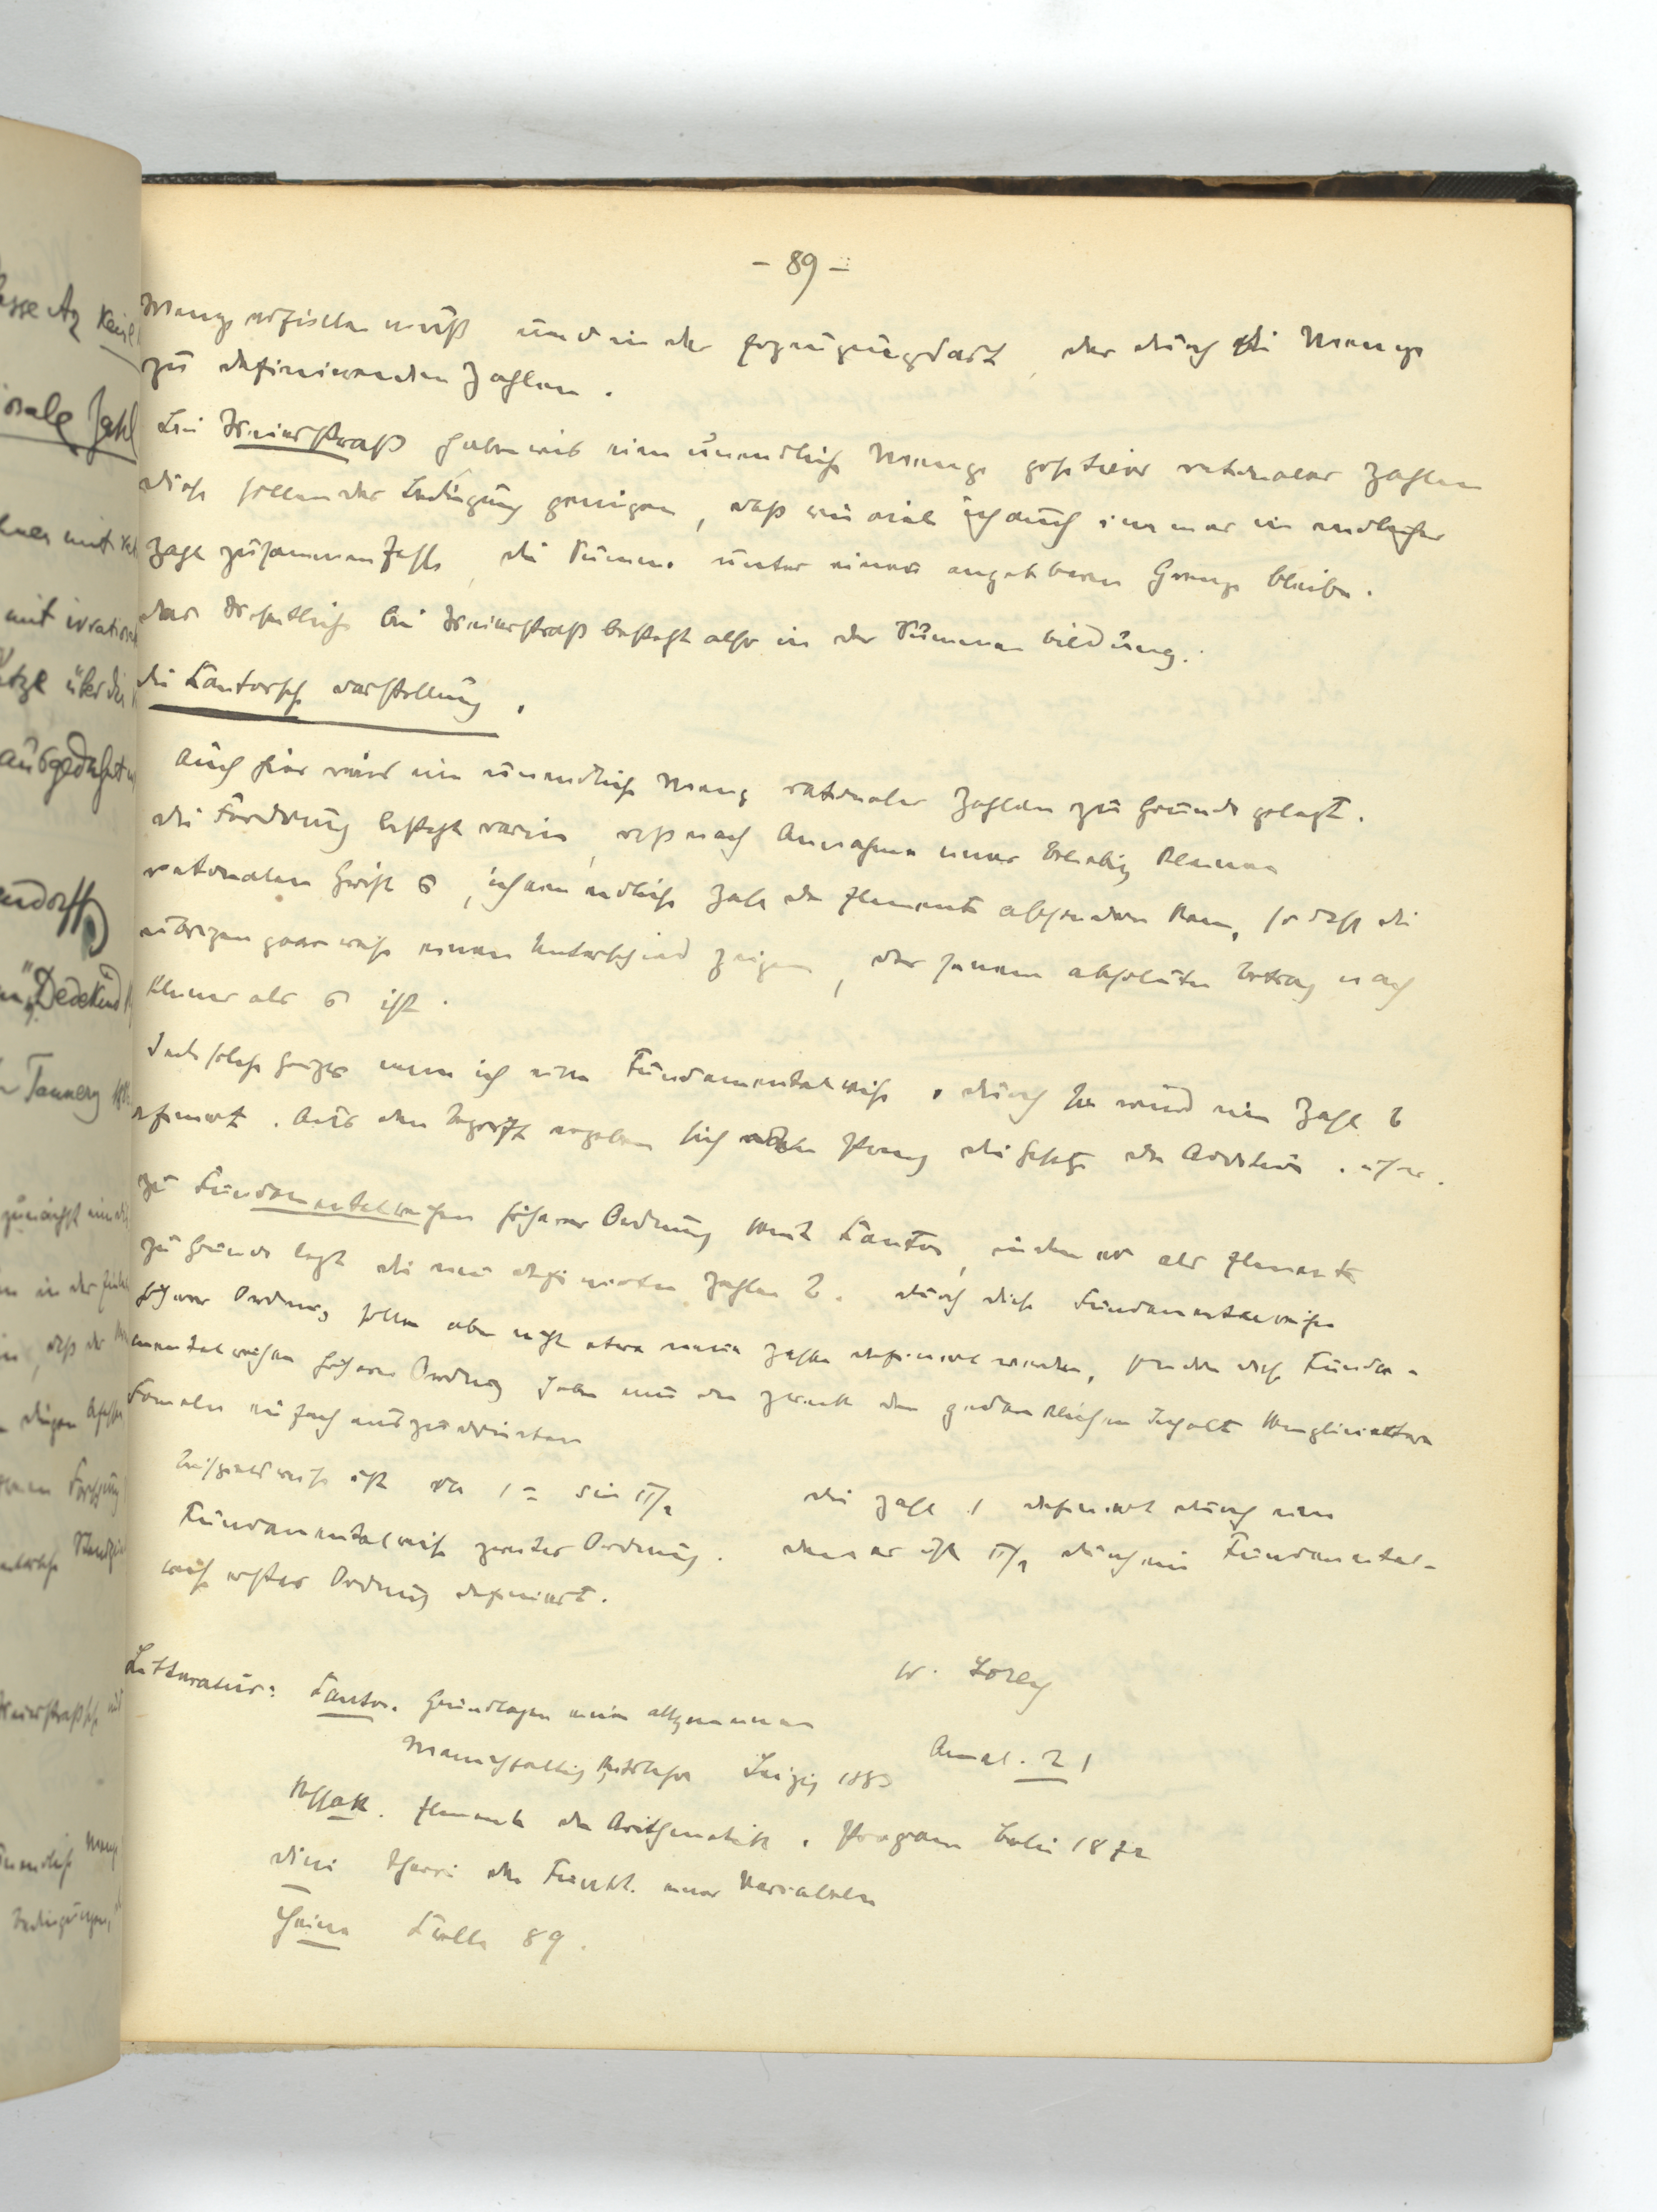 - 89 -
Menge erfüllen muß und in der Erzeugungsart der durch die Menge
zu definierenden Zahlen.
Bei Weierstraß haben wir eine unendliche Menge positiver rationaler Zahlen
diese sollen der Bedingung genügen, daß wie viele ich auch immer in endlicher
Zahl zusammenfasse, die Summe unter einer angebbaren Grenze bleibe.
Das Wesentliche bei Weierstraß besteht also in der Summenbildung.
Die Cantorsche Darstellung.
Auch hier wird eine unendliche Menge rationaler Zahlen zu Grunde gelegt.
Die Forderung besteht darin, daß nach Annahme einer beliebig kleinen
rationalen Größe σ, ich eine endliche Zahl der Elemente absondern kann, so daß die
übrigen paarweise einen Unterschied zeigen, der seinem absoluten Betrag nach
kleiner als σ ist.
Jede solche Menge nenne ich eine Fundamentalreihe, durch sie wird eine Zahl b
definiert. Aus dem Begriff ergeben sich streng die Gesetze der Addition. usw.
Zu Fundamentalreihen höherer Ordnung kommt Cantor, indem er als Elemente
zu Grunde legt die neu definierten Zahlen b. Durch diese Fundamentalreihen
höherer Ordnung sollen aber nicht etwa neue Zahlen definiert werden, sondern diese Funda-
mentalreihen höherer Ordnung haben nur den Zweck den gedanklichen Inhalt komplizierterer
Formeln einfach auszudrücken
Beispielsweise ist da 1 = sin π/2 die Zahl 1 definiert durch eine
Fundamentalreihe zweiter Ordnung. Denn es ist π/2 durch eine Fundamental-
reihe erster Ordnung definiert.
W. Lorey
Litteratur: Cantor. Grundlagen einer allgemeinen
Mannigfaltigkeitslehre Leipzig 1883 Annal. 21
Kossak. Elemente der Arithmetik. Programm Berlin 1872
Dini Theorie der Funkt. einer Variabeln
Heine Crelle 89.